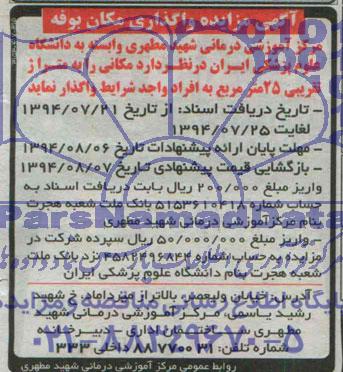 آگهی مزایده واگذاری مکان بوفه
مرکز آموزشی درمانی شهید مطهری وابسته به دانشگاه
علوم پزشکی ایران در نظر دارد مکانی را به متراژ
تقریبی ۲۵ متر مربع به افراد واجد شرایط واگذار نماید
- تاریخ دریافت اسناد: از تاریخ ۱۳۹۴/۰۷/۲۱
لغایت ۱۳۹۴/۰۷/۲۵
- مهلت پایان ارائه پیشنهادات تاریخ ۱۳۹۴/۰۸/۰۶
- بازگشایی قیمت پیشنهادی تاریخ ۱۳۹۴/۰۸/۰۷
واریز مبلغ ۲۰۰/۰۰۰ ریال بابت دریافت اسناد به
حساب شماره ۵۱۵۳۶۱۰۴۱۸ بانک ملت شعبه هجرت
بنام مرکز آموزشی درمانی شهید مطهری
- واریز مبلغ ۵۰/۰۰۰/۰۰۰ ریال سپرده شرکت در
مزایده به حساب شماره نزد بانک ملت
شعبه هجرت بنام دانشگاه علوم پزشکی ایران
- آدرس: خیابان ولیعصر، بالاتر از میرداماد، خ شهید
رشید یاسمی، مرکز آموزشی درمانی شهید
مطهری ساختمان اداری دبیرخانه
شماره تلفن: ۳۱ ۷۷۰۰ ۸۸ داخلی ۳۳۳
روابط عمومی مرکز آموزشی درمانی شهید مطهری
ParsNamadData
۰۲۱-۸۸۳۴۹۶۷۰-۵